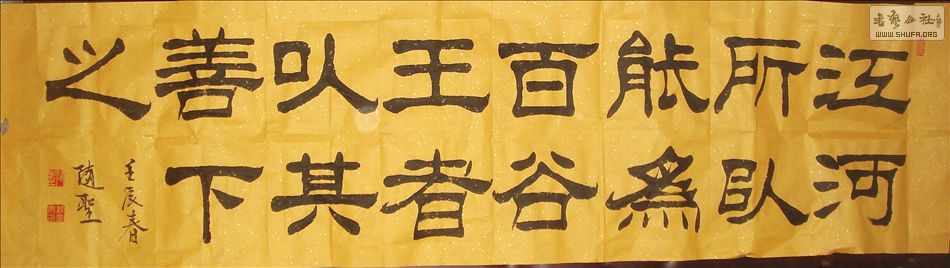 江河
所以
能為
百谷
王者
以其
善下
之
壬辰春
隨聖
書藝公社
WWW.SHUFA.ORG